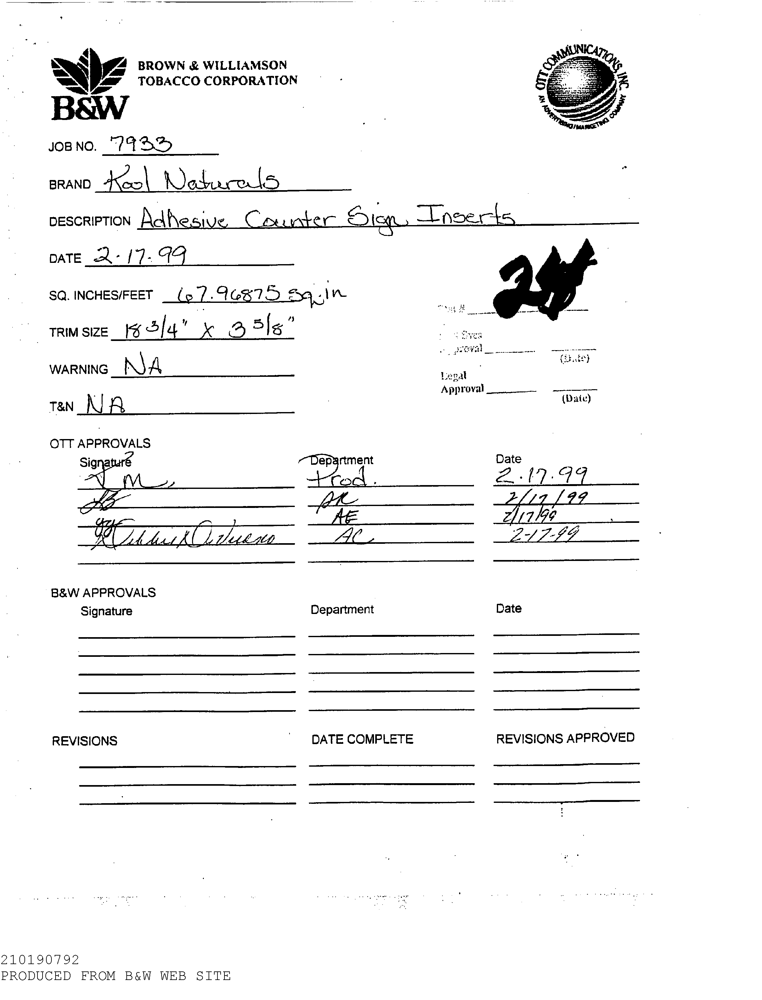 BROWN & WILLIAMSON
TOBACCO CORPORATION
B&W
OTT COMMUNICATIONS, INC.
AN ADVERTISING/MARKETING COMPANY
JOB NO. 7933
BRAND Kool Naturals
DESCRIPTION Adhesive Counter Sign Inserts
DATE 2-17-99
SQ. INCHES/FEET 67.96875 sq. in
TRIM SIZE 18 3/4" X 3 5/8"
(Date)
WARNING NA
Legal
Approval
(Date)
T&N NA
OTT APPROVALS
Signature Department Date
Prod. 2.17.99
2/17/99
AE 2/17/99
AC 2-17-99
B&W APPROVALS
Signature Department Date
REVISIONS DATE COMPLETE REVISIONS APPROVED
210190792
PRODUCED FROM B&W WEB SITE